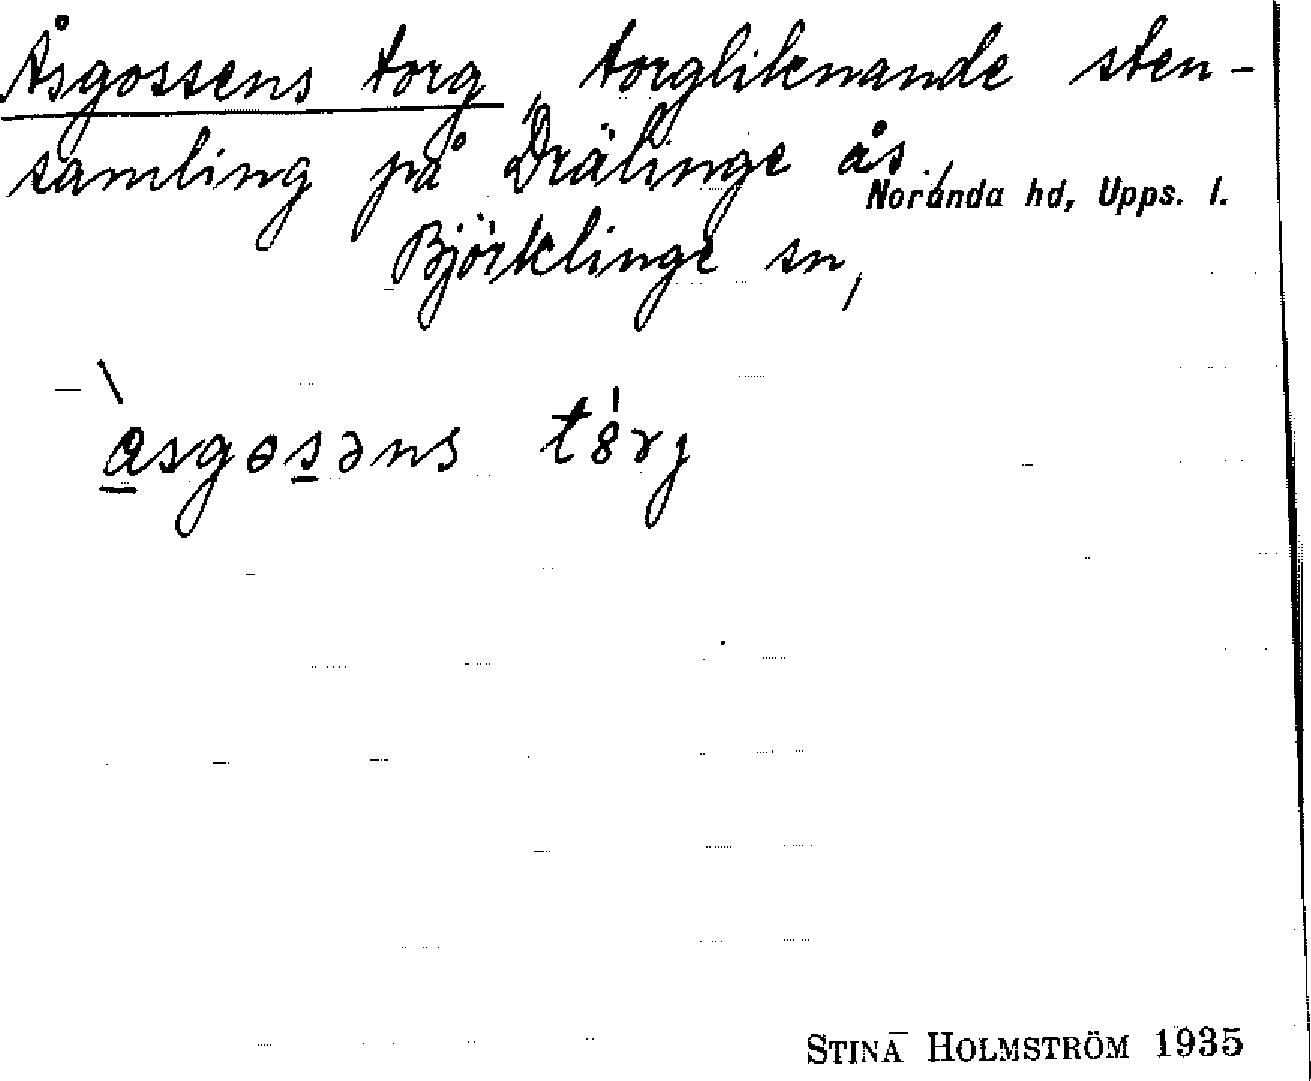 Åsgossens torg, torgliknande sten-
samling på Drälinge ås,
Norunda hd, Upps. l.
Björklinge sn,
àsgosəns tȣ́rj
STINA HOLMSTRÖM 1935